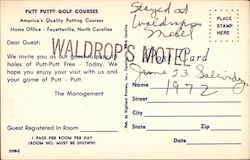 PUTT PUTT® GOLF COURSES
America's Quality Putting Courses
Home Office - Fayetteville, North Carolina
Dear Guest:
WALDROP'S MOTEL
We invite you as our guest
holes of Putt-Putt Free - Today. We
hope you enjoy your visit with us and
your game of Putt - Putt.
The Management
Guest Registered In Room
1 PASS PER ROOM PER DAY
(ROOM NO. MUST BE SHOWN)
Stayed at
Waldrops
Motel
Post Card
June 23
1972
Name
Address
City
State